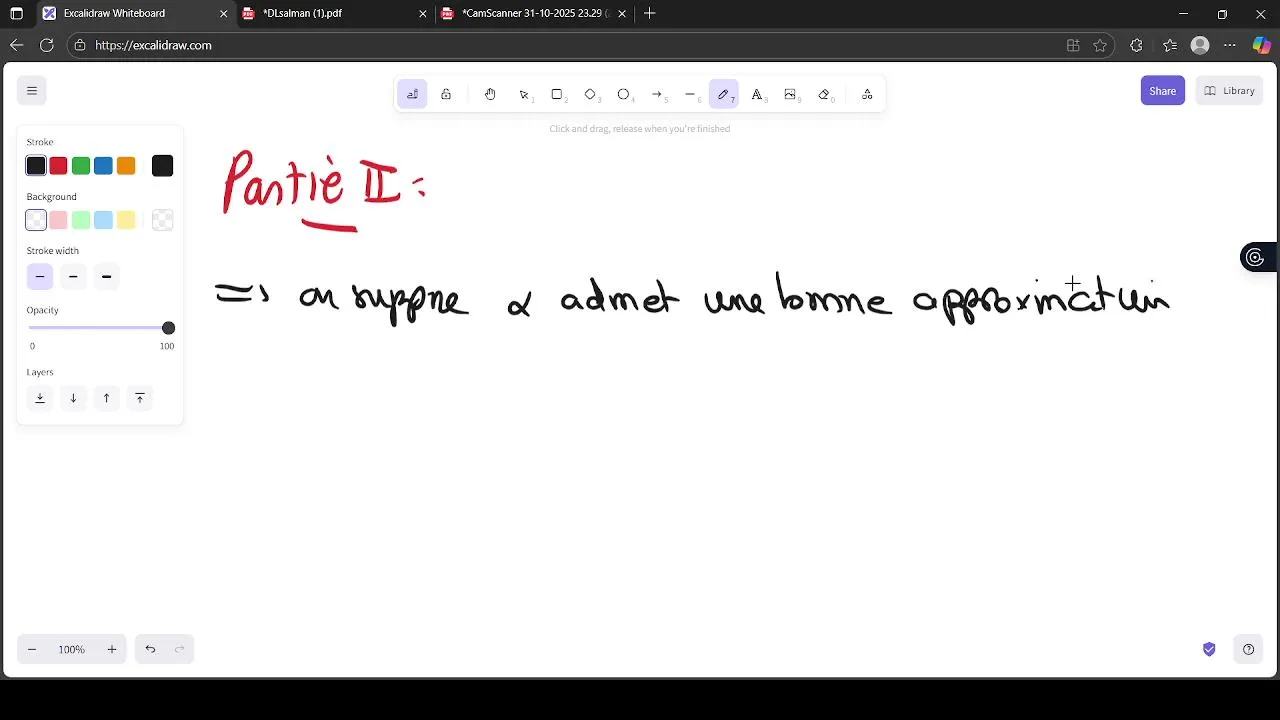 Excalidraw Whiteboard
*DLsalman (1).pdf
*CamScanner 31-10-2025 23.29 (
https://excalidraw.com
1
2
3
4
5
6
7
8
9
0
Share
Library
Click and drag, release when you're finished
Stroke
Background
Stroke width
Opacity
0 100
Layers
Partiè II :
=> on suppne α admet une bonne approximation
100%